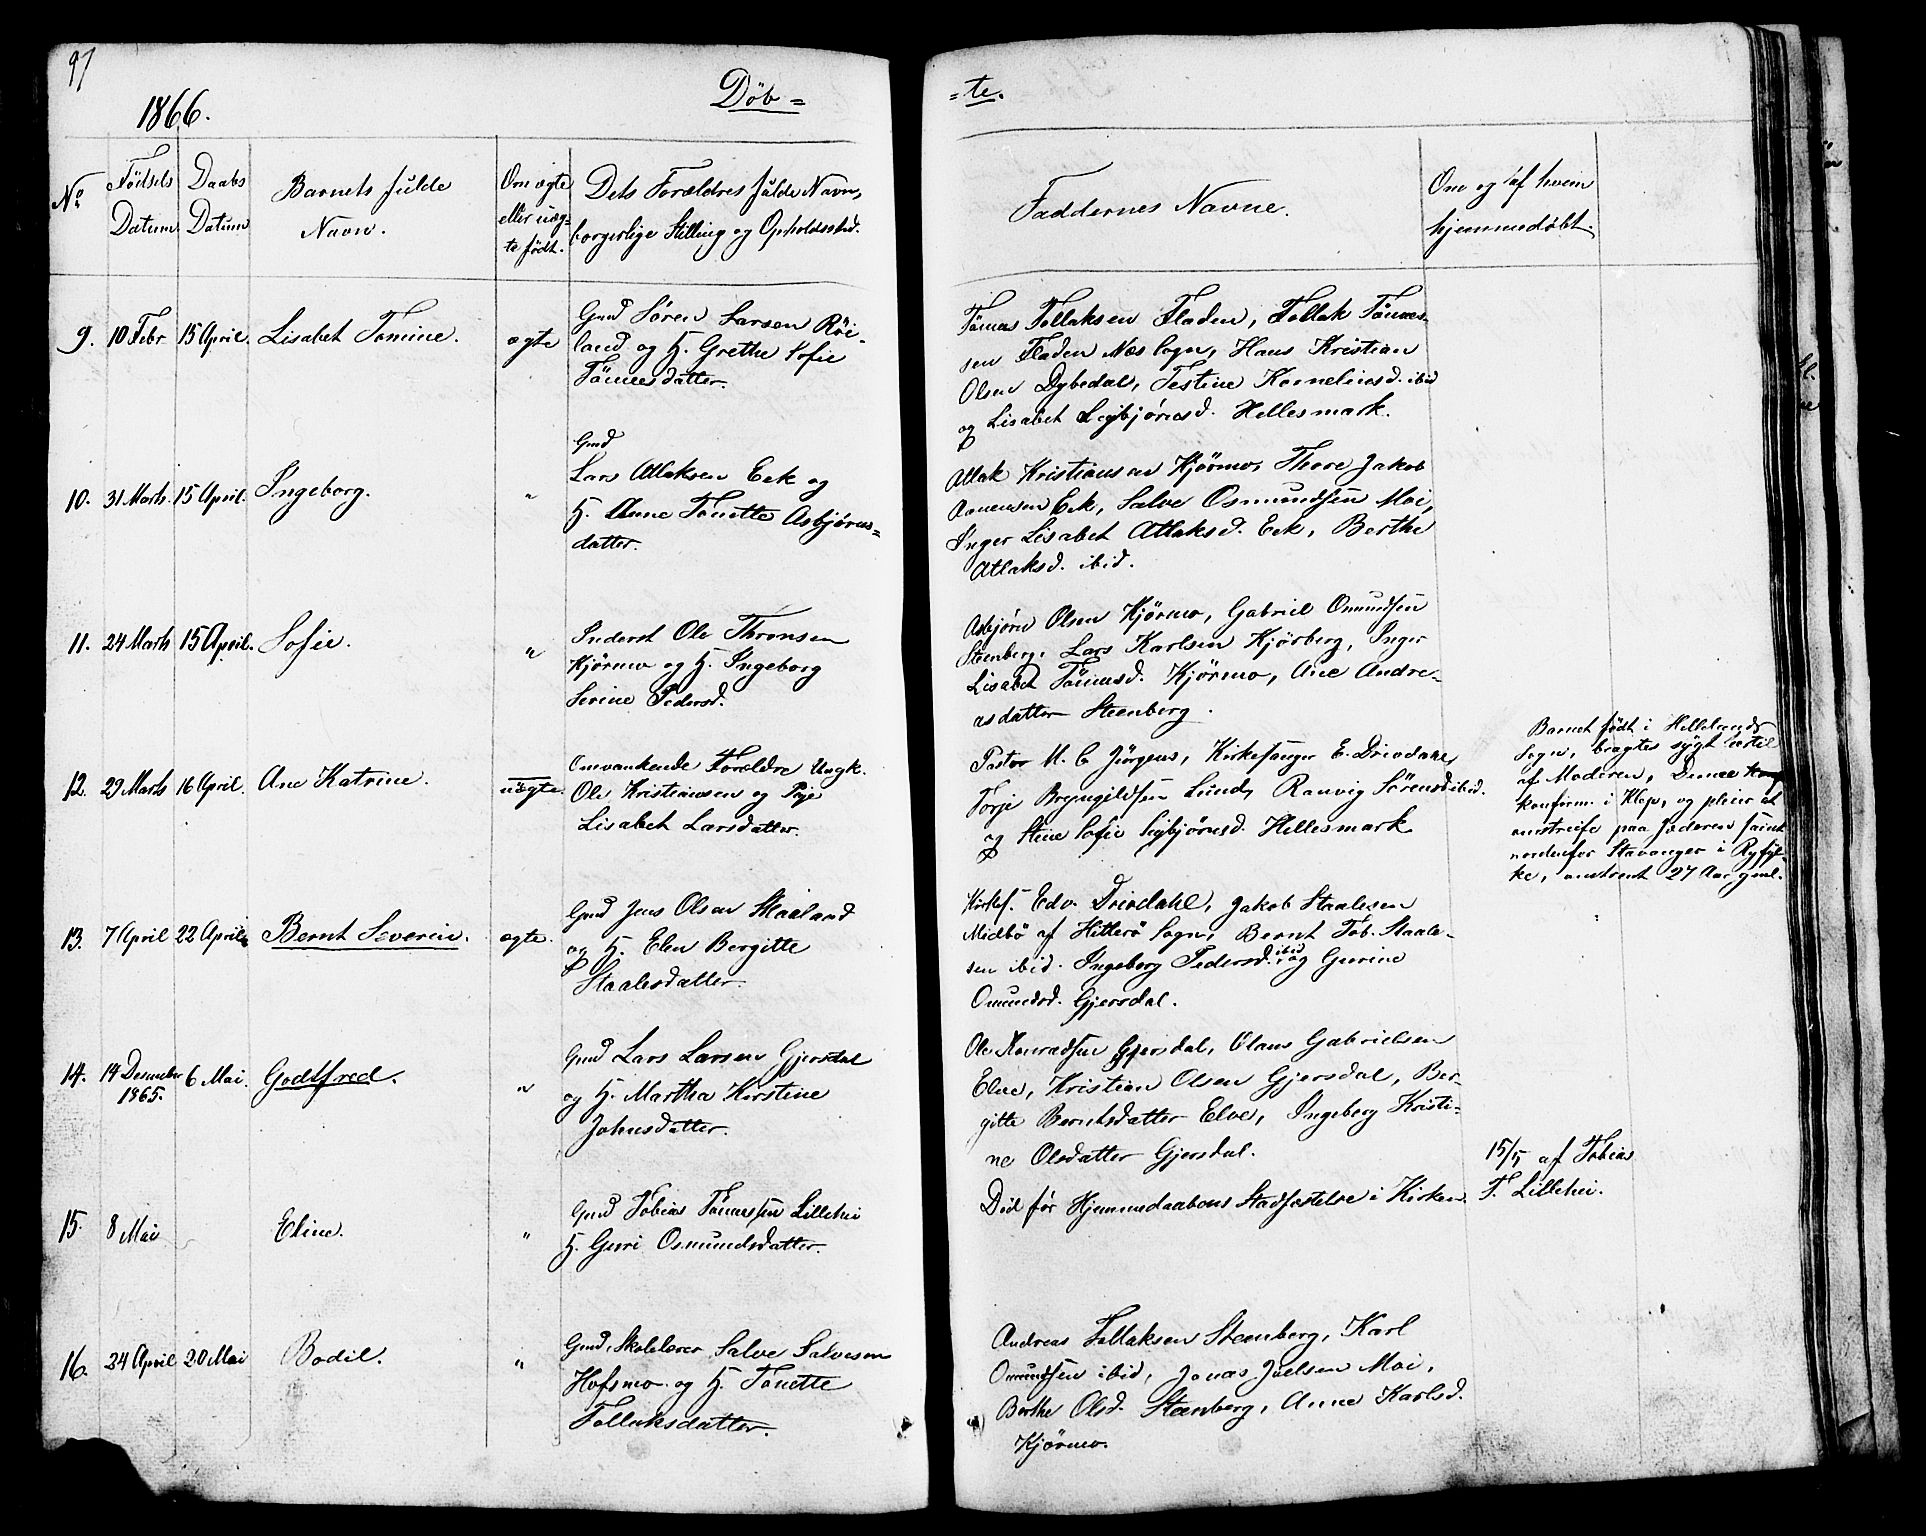 97
1866.
Døb=
=te.
No
Fødsels Datum.
Daabs Datum
Barnets fulde Navn.
Om ægte eller uæg- te født.
Dets Forældres fulde Navn, borgerlige Stilling og Opholdssted.
Faddernes Navne.
Om og af hvem hjemmedøbt.
9. 10 Febr. 15 April. Lisabet Tomine. ægte
Gmd Søren Larsen Röi-
land og H. Grethe Sofie
Tönnesdatter.
Tönnes Tollaksen Fladen, Tollak Tönnes-
sen Fladen Næs Sogn, Hans Kristian
Olsen Dybedal, Testine Kornelius d. ibid
og Lisabet Sigbjørnsd. Hellesmark.
10. 31 Marts. 15 April. Ingeborg. "
Gmd
Lars Atlaksen Eek og
H. Anne Tonette Asbjørns=
datter.
Atlak Kristiansen Kjørmo, Thore Jakob
Aanensen Eek, Salve Osmundsen Moi,
Inger Lisabet Atlaksd. Eek, Berthe
Atlaksd. ibid.
11. 24 Marts 15 April. Sofie. "
Inderst Ole Thronsen
Kjørmo og H. Ingeborg
Serine Pedersd.
Asbjørn Olsen Kjørmo, Gabriel Omundsen
Steenberg, Lars Karlsen Kjørberg, Inger
Lisabet Tönnesd. Kjørmo, Ane Andre-
asdatter Steenberg.
12. 29 Marts 16 April. Ane Katrine. uægte.
Omvankende Forældre Ungk.
Ole Kristiansen og Pige
Lisabet Larsdatter.
Pastor M. C. Jürgens, Kirkesanger E. Drivdahl,
Torje Bryngildsen Lund, Ranvig Sörensd ibid.
og Stine Sofie Sigbjørnsd. Hellesmark
Barnet født i Hellelands
Sogn, bragtes sygt hertil
af Moderen, Denne
konfirm. i Klep, og pleier at
omstreife paa Jæderen samt
nordenfor Stavanger i Ryfyl-
ke, omtrent 27 Aar gml.
13. 7 April 22 April Bernt Severin. ægte.
Gmd Jens Olsen Skaaland
og H. Elen Bergitte
Staalesdatter.
Kirkes. Edv. Drivdahl, Jakob Staalesen
Midbö af Hitterö Sogn, Bernt Tob. Staale-
sen ibid. Ingeborg Pedersd. ibid og Gurine
Omundsd. Gjersdal.
14. 14 Desember 1865. 6 Mai. Godtfred. "
Gmd Lars Larsen Gjersdal
og H. Martha Kirstine
Johnsdatter.
Ole Konradsen Gjersdal, Olaus Gabrielsen
Elve, Kristian Olsen Gjersdal, Ber-
gitte Berntsdatter Elve, Ingeborg Kristi-
ne Olsdatter Gjersdal.
15. 8 Mai Eline. "
Gmd Tobias Tönnessen Lillehei
H. Gurri Osmundsdatter.
Död før Hjemmedaabens Stadfæstelse i Kirken.
15/5 af Tobias
T. Lillehei.
16. 24 April 20 Mai Bodil. "
Gmd, Skolelærer Salve Salvesen
Hofsmo og H. Tonette
Tollaksdatter.
Andreas Tollaksen Steenberg, Karl
Omundsen ibid, Jonas Juelsen Moi,
Berthe Olsd. Steenberg, Anne Karlsd.
Kjørmo.